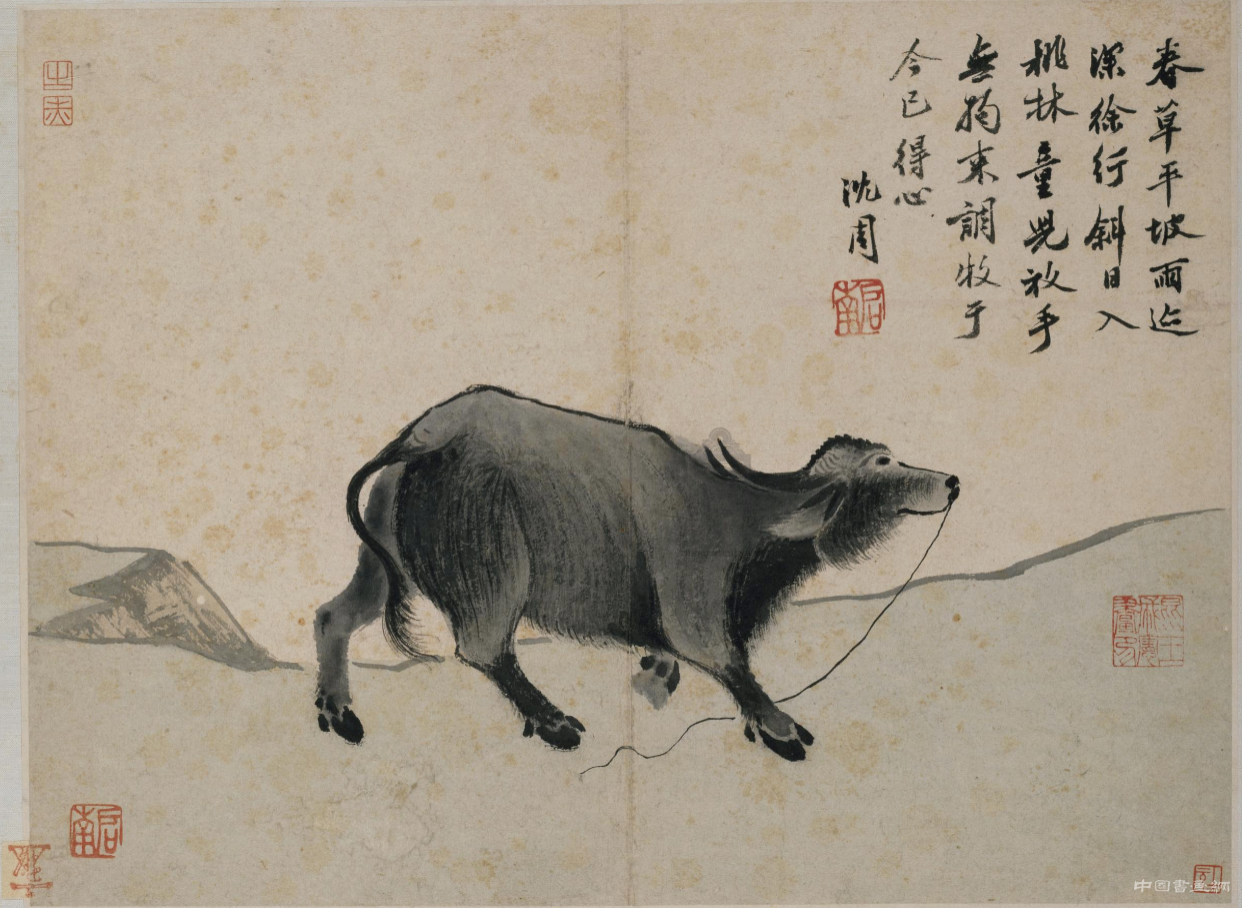 春草平坡雨迹
深徐行斜日入
桃林童兒放手
無拘束調牧于
今已得心
沈周
启南
启南